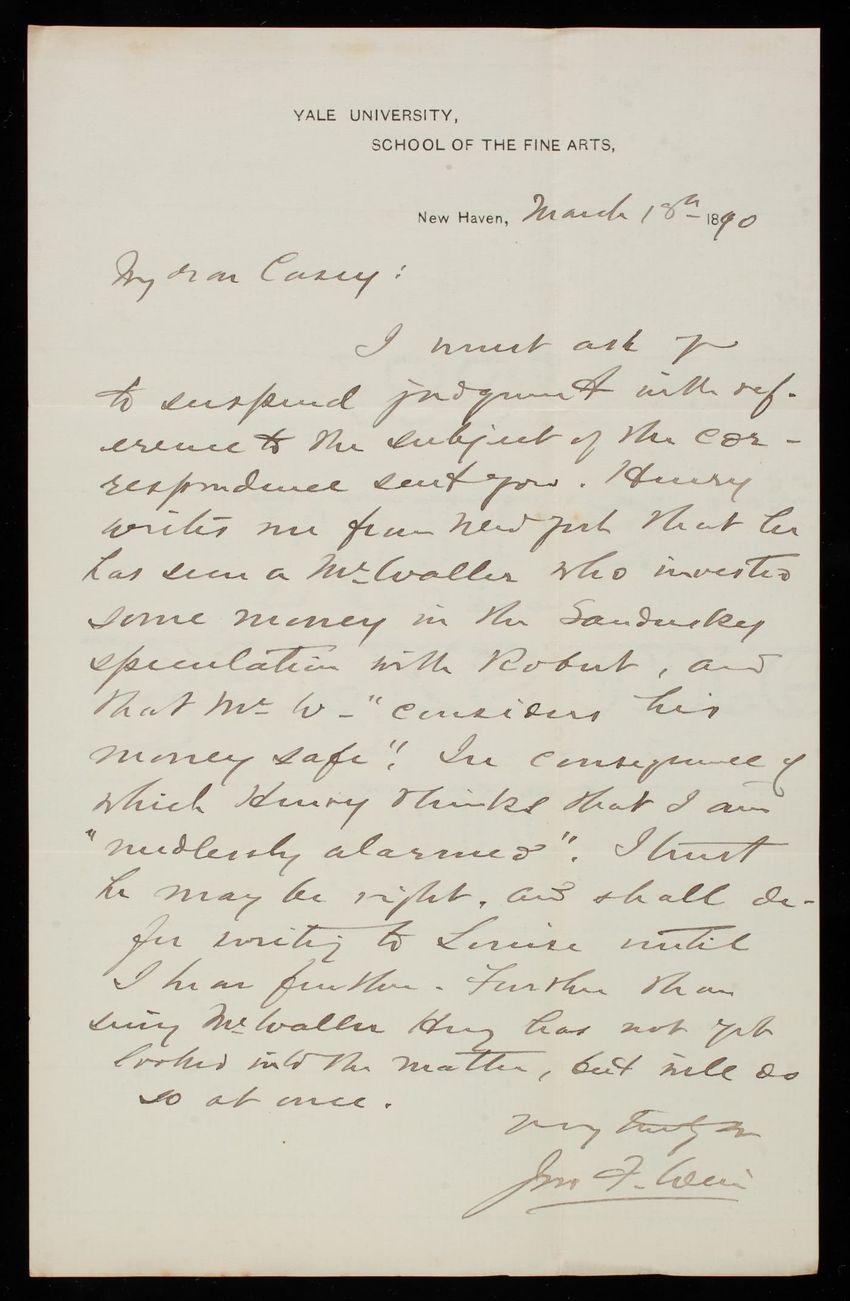 YALE UNIVERSITY,
SCHOOL OF THE FINE ARTS,
New Haven, March 18th 1890
My dear Casey:
I must ask you
to suspend judgment with ref-
erence to the subject of the cor-
respondence sent you. Henry
writes me from New York that he
has seen a Mr. Waller who invested
some money in the Sandusky
speculation with Robert, and
that Mr W- "considers his
money safe". In consequence of
which Henry thinks that I am
"needlessly alarmed". I trust
he may be right, and shall de-
fer writing to Louise until
I hear further. Further than
seeing Mr. Waller Henry has not yet
looked into the matter, but will do
so at once.
very truly yrs
Jno F. Weir